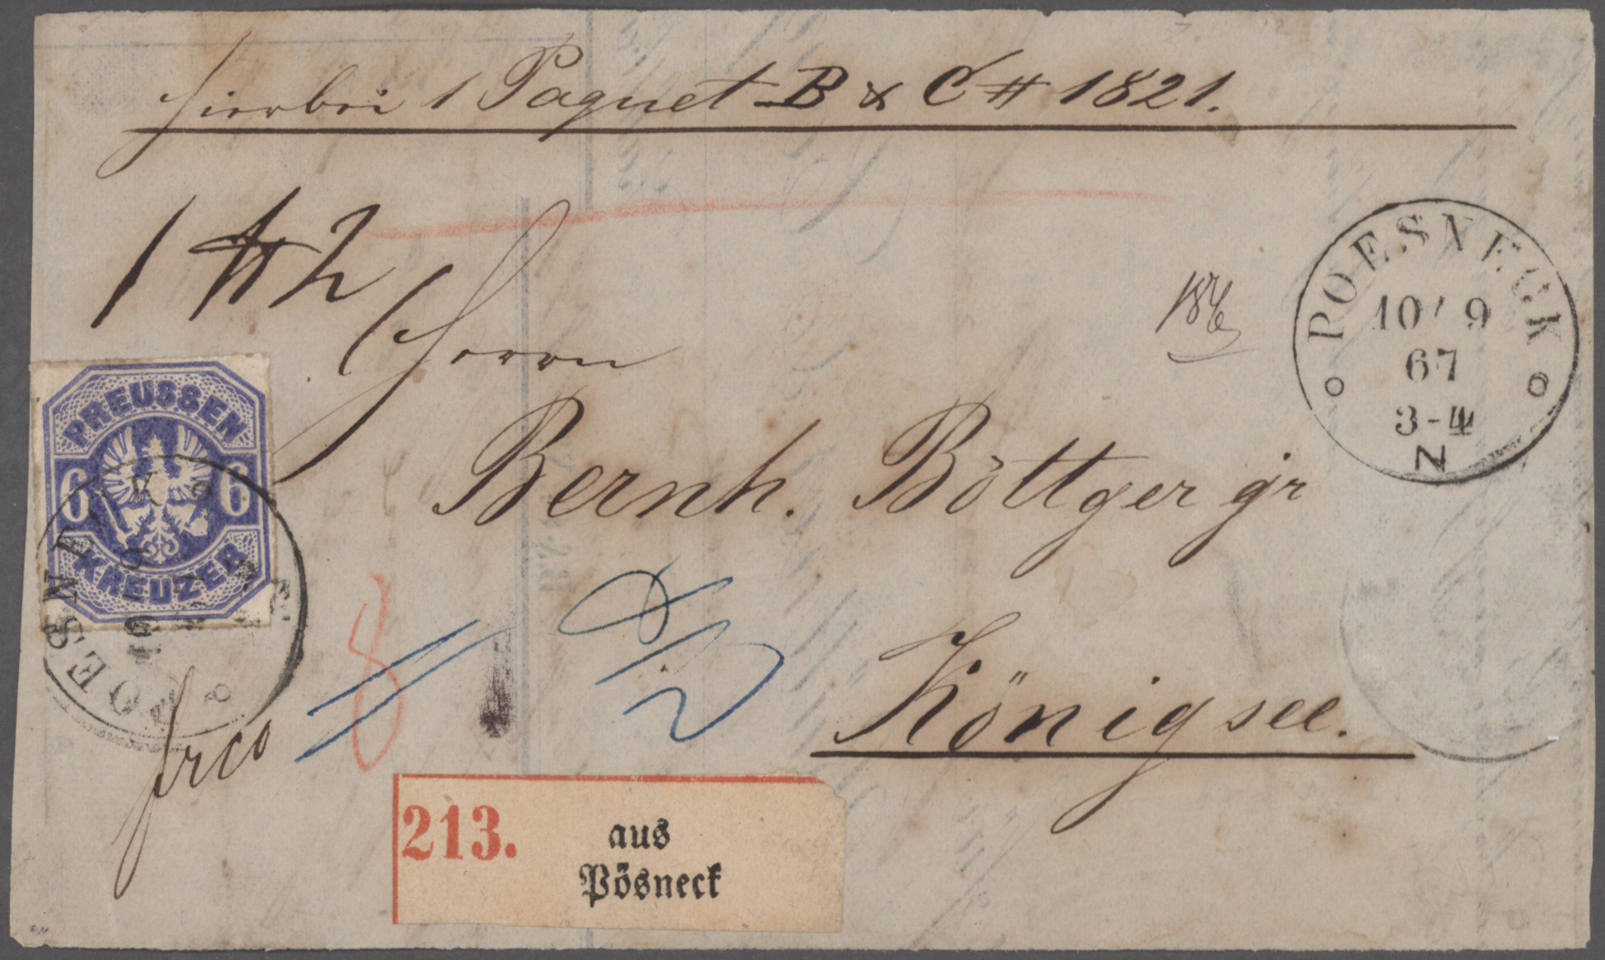 hierbei 1 Paquet B & C # 1821.
1 # 2
Herrn
186
POESNECK
10/9
67
3-4
N
PREUSSEN
6 6
KREUZER
Bernh. Böttger jr
8
Königsee.
POESNECK
frco
213.
aus
Pösneck